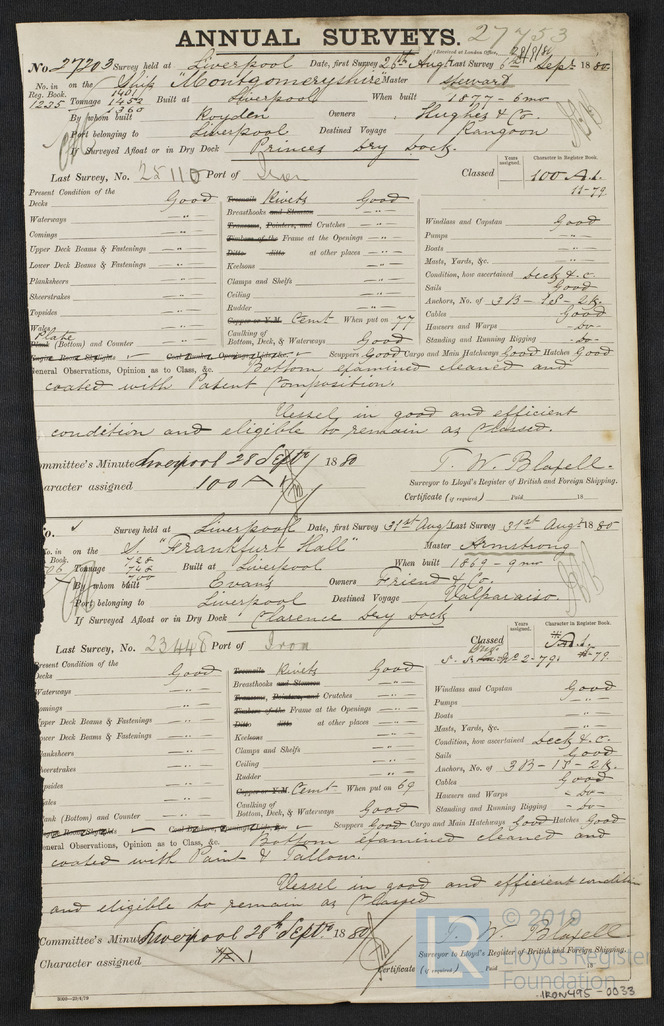 27753
ANNUAL SURVEYS.
Received at London Office, 28/9/80
No. 27203 Survey held at Liverpool Date, first Survey 26th Augt Last Survey 6th Sept 1880
No. in Reg. Book. 1225 on the Ship "Montgomeryshire" Master Steward
Tonnage 1401 1453 1360 Built at Liverpool When built 1877 - 6mo
By whom built Royden Owners Hughes & Co.
Port belonging to Liverpool Destined Voyage Rangoon
If Surveyed Afloat or in Dry Dock Princes Dry Dock.
Last Survey, No. 25110 Port of Iron Classed Years assigned. Character in Register Book. 100 A.1. 11-79
Present Condition of the
Decks Good
Waterways — " —
Comings — " —
Upper Deck Beams & Fastenings — " —
Lower Deck Beams & Fastenings — " —
Planksheers — " —
Sheerstrakes — " —
Topsides — " —
Wales — " —
Plate (Bottom) and Counter — " —
Engine Room Skylights ✓
Treenails Rivets Good
Breasthooks and Stemson — " —
Transoms, Pointers, and Crutches — " —
Timbers of the Frame at the Openings — " —
Ditto ditto at other places — " —
Keelsons — " —
Clamps and Shelfs — " —
Ceiling — " —
Rudder — " —
Copper or Y.M. Cemt. When put on 77
Caulking of Bottom, Deck, & Waterways Good
Coal Bunkers, Openings, Lids, &c. ✓
Windlass and Capstan Good
Pumps — " —
Boats — " —
Masts, Yards, &c. — " —
Condition, how ascertained Deck &.c.
Sails Good
Anchors, No. of 3B - 1S - 2K.
Cables Good
Hawsers and Warps - Do -
Standing and Running Rigging - Do -
Scuppers Good Cargo and Main Hatchways Good Hatches Good
General Observations, Opinion as to Class, &c. Bottom examined cleaned and
coated with Patent Composition.
Vessel in good and efficient
condition and eligible to remain as Classed.
ommittee's Minute Liverpool 28 Septr 1880
T. W. Blaxell.
haracter assigned 100 A 1
Surveyor to Lloyd's Register of British and Foreign Shipping.
Certificate (if required) Paid 18
o. ✓ Survey held at Liverpool Date, first Survey 31st Aug Last Survey 31st Augt 1880
o. in Book. on the S. "Frankfurt Hall" Master Armstrong
Tonnage 728 748 Built at Liverpool When built 1869 - 9mo
By whom built Evans Owners Friend & Co.
Port belonging to Liverpool Destined Voyage Valparaiso.
If Surveyed Afloat or in Dry Dock Clarence Dry Dock
Last Survey, No. 23448 Port of Iron Classed Years assigned. Character in Register Book.
2-79
Present Condition of the
Decks Good
Waterways — " —
omings — " —
pper Deck Beams & Fastenings — " —
ower Deck Beams & Fastenings — " —
anksheers — " —
eerstrakes — " —
psides — " —
ales — " —
ank (Bottom) and Counter — " —
Treenails Rivets Good
Breasthooks and Stemson — " —
Transoms, Pointers, and Crutches — " —
Timbers of the Frame at the Openings — " —
Ditto ditto at other places — " —
Keelsons — " —
Clamps and Shelfs — " —
Ceiling — " —
Rudder — " —
Copper or Y.M. Cemt. When put on 69
Caulking of Bottom, Deck, & Waterways Good
Windlass and Capstan Good
Pumps — " —
Boats — " —
Masts, Yards, &c. — " —
Condition, how ascertained Deck &.c.
Sails Good
Anchors, No. of 3B - 1S - 2K.
Cables Good
Hawsers and Warps - Do -
Standing and Running Rigging - Do -
Scuppers Good Cargo and Main Hatchways Good Hatches Good
eneral Observations, Opinion as to Class, &c. Bottom examined cleaned and
coated with Paint & Tallow.
Vessel in good and efficient condition
and eligible to remain as Classed
Committee's Minute Liverpool 28th Septr. 1880
T. W. Blaxell
Character assigned A 1
Surveyor to Lloyd's Register of British and Foreign Shipping.
Certificate (if required) Paid 18
LR © 2019 Lloyd's Register Foundation
IRON495-0033